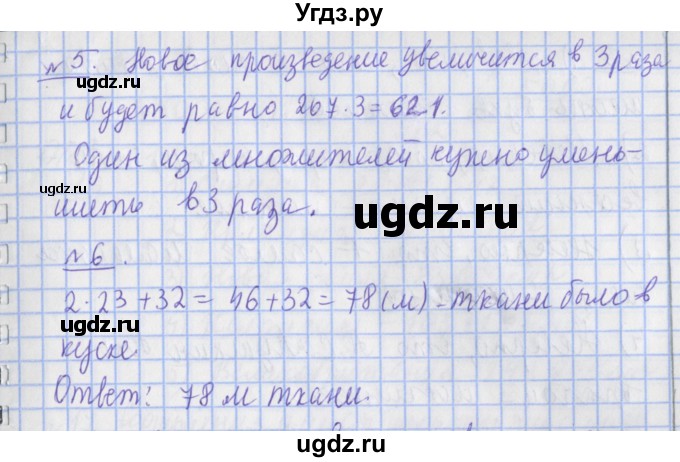 Угдз.ру
№5. Новое произведение увеличится в 3 раза
ugdz.ru
ugdz.ru
и будет равно 207·3=621.
Один из множителей нужно умень-
ugdz.ru
шить в 3 раза.
ugdz.ru
№6.
2·23+32=46+32=78(м)-ткани было в
ugdz.ru
куске
ugdz.ru
Ответ: 78 м ткани.
ugdz.ru
ugdz.ru